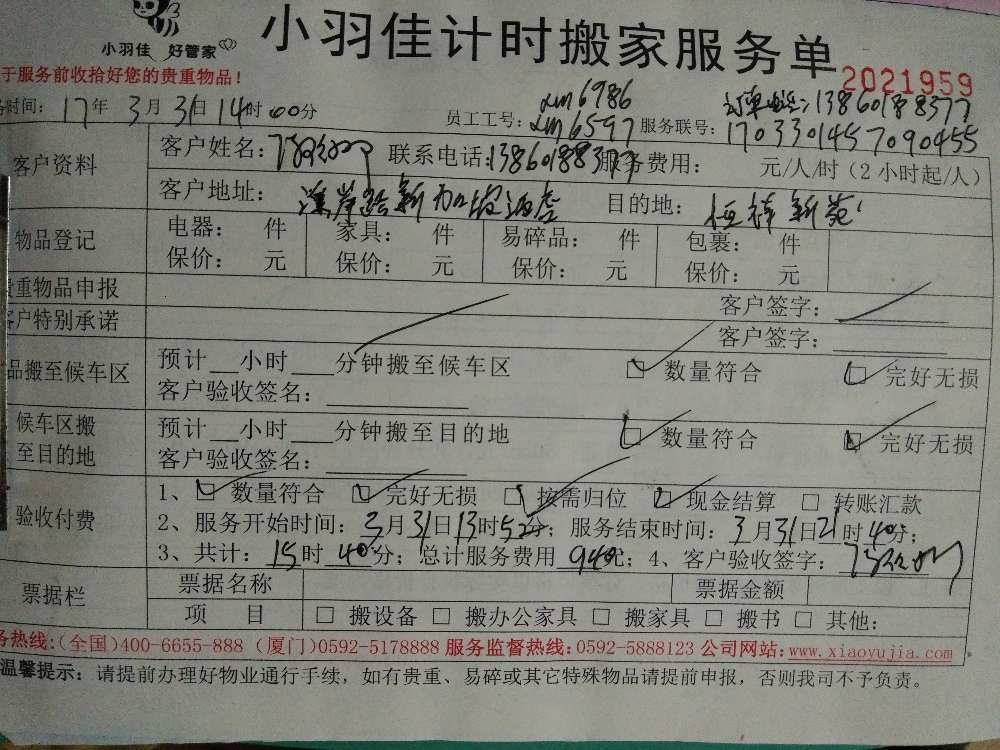 小羽佳 好管家
小羽佳计时搬家服务单
2021959
于服务前收拾好您的贵重物品！
务时间：17年3月31日14时00分
员工工号：
xm6986
xm6597
订单电话：13860188377
服务联号：1703301457090455
客户资料
客户姓名：
联系电话：13860188377
服务费用： 元/人/时（2小时起/人）
客户地址：
新加坡酒店
目的地：恒祥新苑
物品登记
电器： 件 家具： 件 易碎品： 件 包裹： 件
保价： 元 保价： 元 保价： 元 保价： 元
贵重物品申报 客户签字：
客户特别承诺 客户签字：
品搬至候车区
预计__小时___分钟搬至候车区 □ 数量符合 □ 完好无损
客户验收签名：
候车区搬至目的地
预计__小时___分钟搬至目的地 □ 数量符合 □ 完好无损
客户验收签名：
验收付费
1、□ 数量符合 □ 完好无损 □ 按需归位 □ 现金结算 □ 转账汇款
2、服务开始时间：3月31日13时52分；服务结束时间：3月31日21时40分；
3、共计：15时40分；总计服务费用940元；4、客户验收签字：
票据栏
票据名称 票据金额
项 目 □ 搬设备 □ 搬办公家具 □ 搬家具 □ 搬书 □ 其他：
务热线：（全国）400-6655-888（厦门）0592-5178888 服务监督热线：0592-5888123 公司网站：www.xiaoyujia.com
温馨提示：请提前办理好物业通行手续，如有贵重、易碎或其它特殊物品请提前申报，否则我司不予负责。